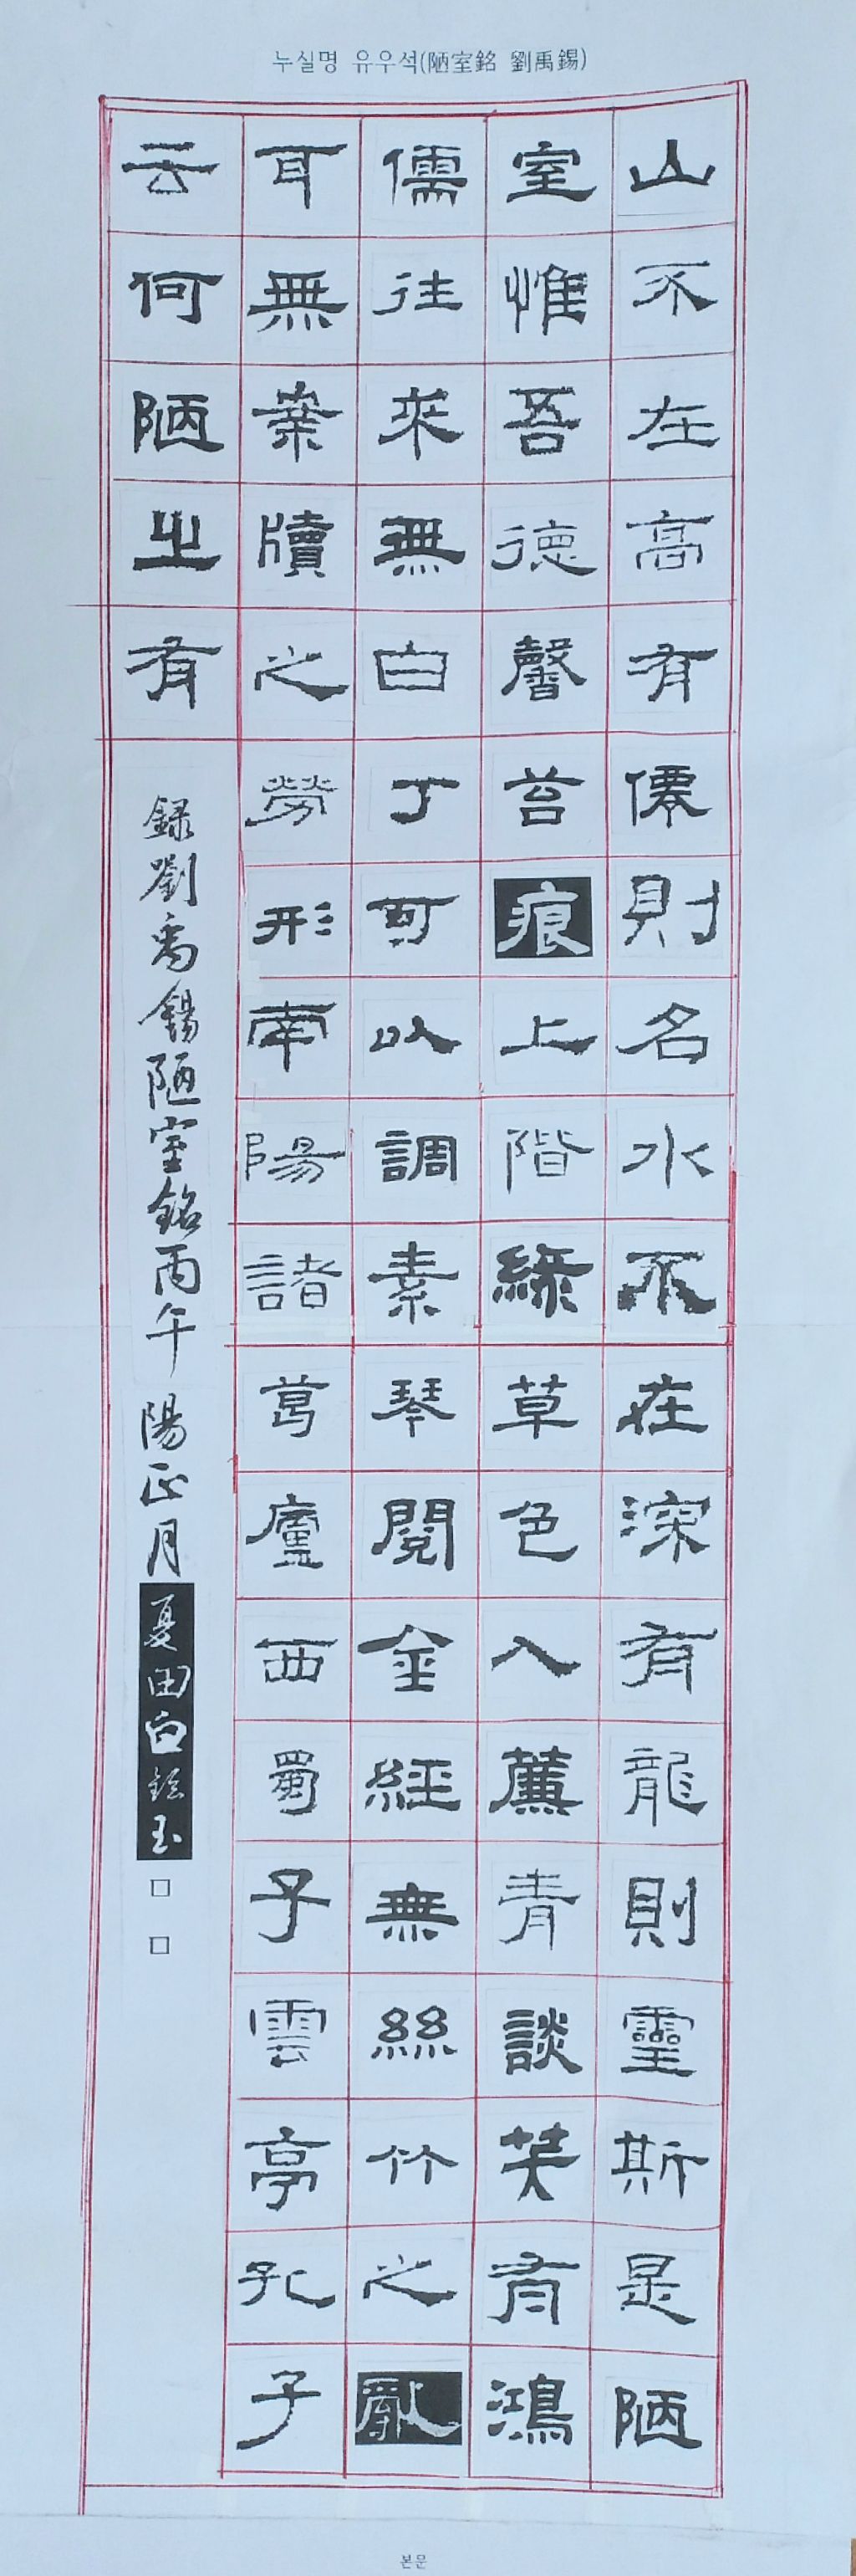 누실명 유우석(陋室銘 劉禹錫)
山不在高有僊則名水不在深有龍則靈斯是陋
室惟吾德馨苔痕上階綠草色入簾青談笑有鴻
儒往來無白丁可以調素琴閱金經無絲竹之亂
耳無案牘之勞形南陽諸葛廬西蜀子雲亭孔子
云何陋之有
録劉禹錫陋室銘丙午 陽正月夏田白玉 □ □
본문